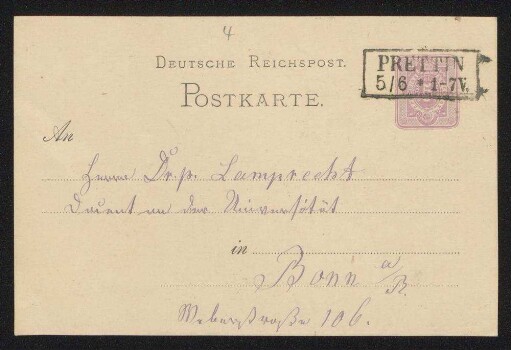 4
DEUTSCHE REICHSPOST.
POSTKARTE.
PRETTIN
5/6 * 1-7V.
An
Herrn Dr. p. Lamprecht
Docent an der Universität
in
Bonn a/R.
Weberstraße 106.